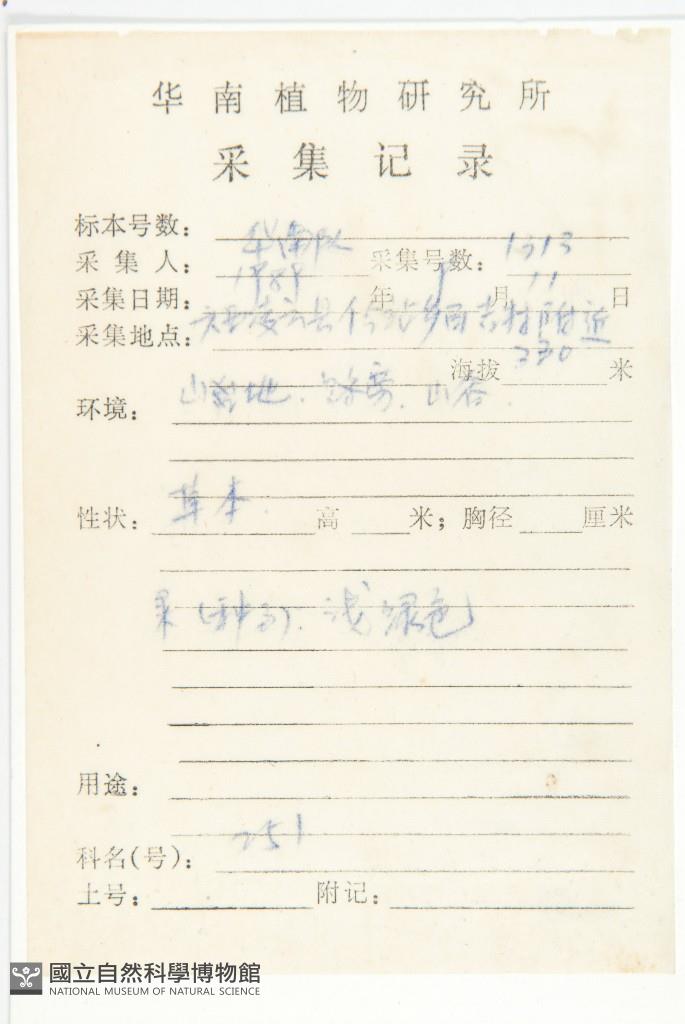 华南植物研究所
采集记录
标本号数：
采集人： 华南队 采集号数： 1313
采集日期： 1989 年 9 月 11 日
采集地点： 凌云县 乡 村附近
海拔 330 米
环境： 山谷
性状： 草本. 高 米；胸径 厘米
果(种子). 浅绿色
用途：
科名(号)： 251
土号： 附记：
國立自然科學博物館
NATIONAL MUSEUM OF NATURAL SCIENCE